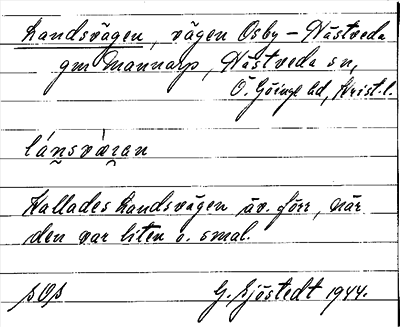 Landsvägen, vägen Osby – Västveda
gm Mannarp, Västveda sn,
Ö. Göinge hd, Krist. l.
lánsvàran
Kallades Landsvägen äv. förr, när
den var liten o. smal.
G. Sjöstedt 1944.